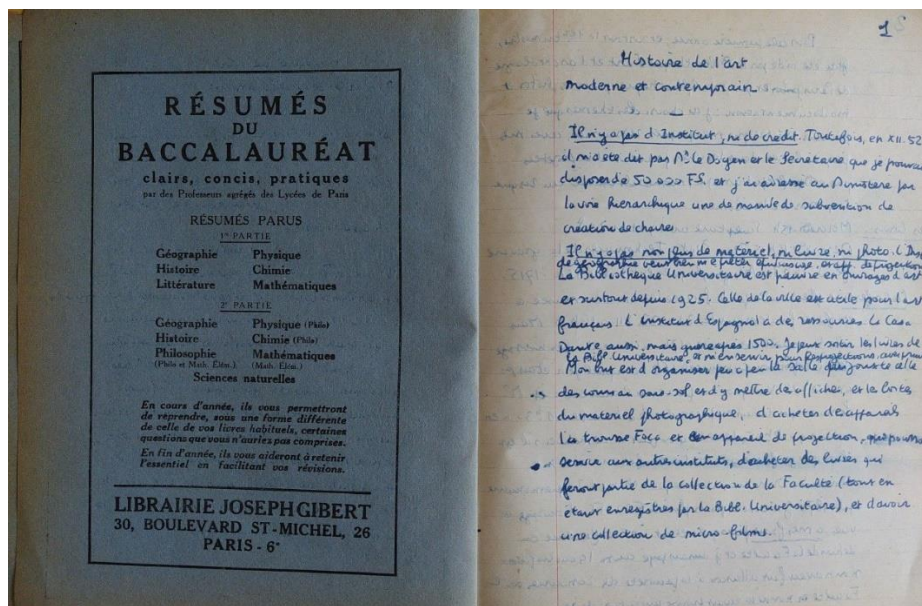 RÉSUMÉS
DU
BACCALAURÉAT
clairs, concis, pratiques
par des Professeurs agrégés des Lycées de Paris
RÉSUMÉS PARUS
1re PARTIE
Géographie Physique
Histoire Chimie
Littérature Mathématiques
2e PARTIE
Géographie Physique (Philo)
Histoire Chimie (Philo)
Philosophie Mathématiques
(Philo et Math. Élém.) (Math. Élém.)
Sciences naturelles
En cours d'année, ils vous permettront
de reprendre, sous une forme différente
de celle de vos livres habituels, certaines
questions que vous n'auriez pas comprises.
En fin d'année, ils vous aideront à retenir
l'essentiel en facilitant vos révisions.
LIBRAIRIE JOSEPH GIBERT
30, BOULEVARD ST-MICHEL, 26
PARIS - 6e
1
Histoire de l'art
moderne et contemporain
Il n'y a pas d'Institut, ni de crédit. Toutefois, en XII. 52
il m'a été dit par Mr le Doyen et le Secrétaire que je pouvais
disposer de 50 000 FS. et j'ai adressé au Ministère par
la voie hiérarchique une demande de subvention de
création de chaire
Il n'y a pas non plus de matériel, ni livre, ni photo. L'
de géographie veut bien me prêter
La Bibliothèque Universitaire est pauvre en ouvrages d'art
et surtout depuis 1925. Celle de la ville est utile pour l'art
français. L'Institut d'Espagnol a des ressources. La Casa
Dante aussi, mais guère après 1500. Je peux sortir les livres de
la Bibl. Universitaire, et m'en servir pour les projections
Mon but est d'organiser peu à peu la salle
des cours au sous-sol et d'y mettre des affiches, et la boîte
du matériel photographique, d'acheter des appareils
la trousse Foca et un appareil de projection, qui
service aux autres instituts, d'acheter des livres qui
feront partie de la collection de la Faculté (tout en
étant enregistrés par la Bibl. Universitaire), et d'avoir
une collection de micro-films.